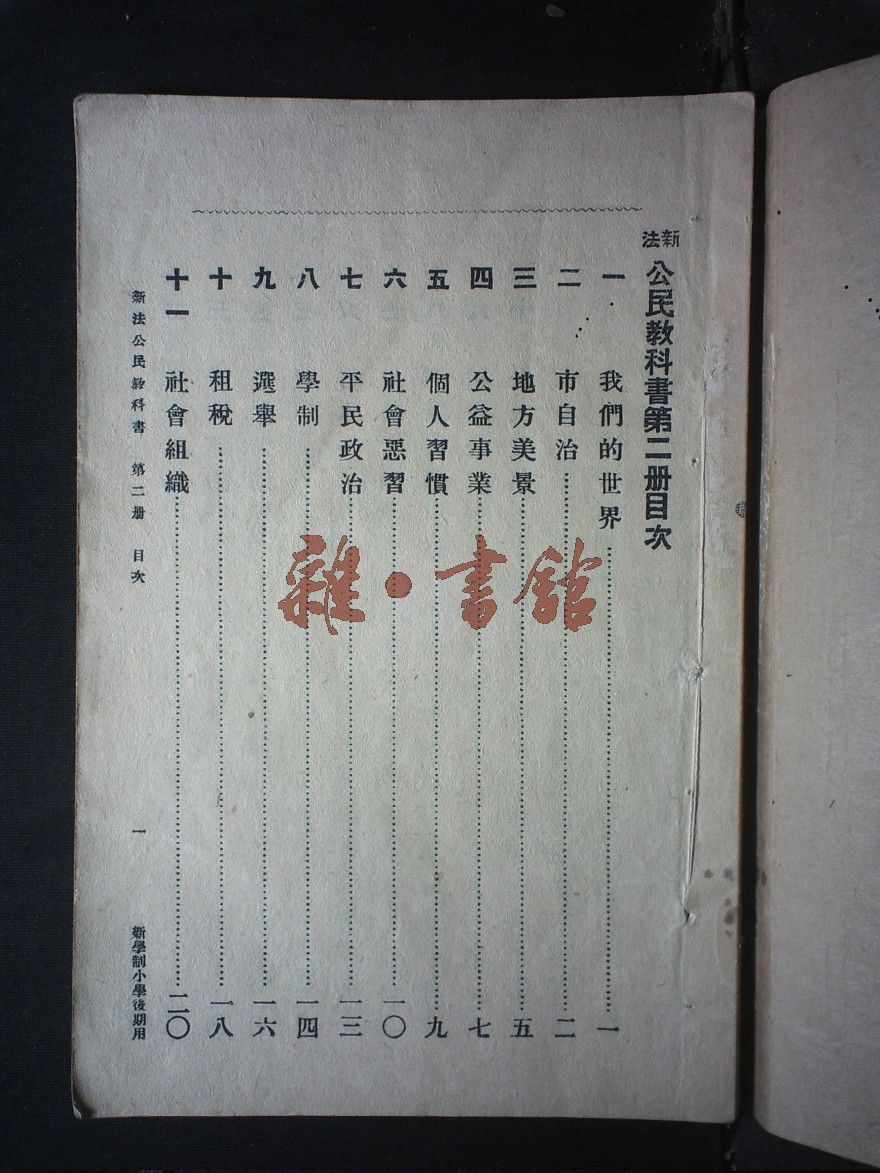 新法公民教科書第二册目次
一 我們的世界……一
二 市自治……二
三 地方美景……五
四 公益事業……七
五 個人習慣……九
六 社會惡習……一〇
七 平民政治……一三
八 學制……一四
九 選舉……一六
十 租稅……一八
十一 社會組織……二〇
新法公民教科書 第二册 目次 一 新學制小學後期用
雜·書館